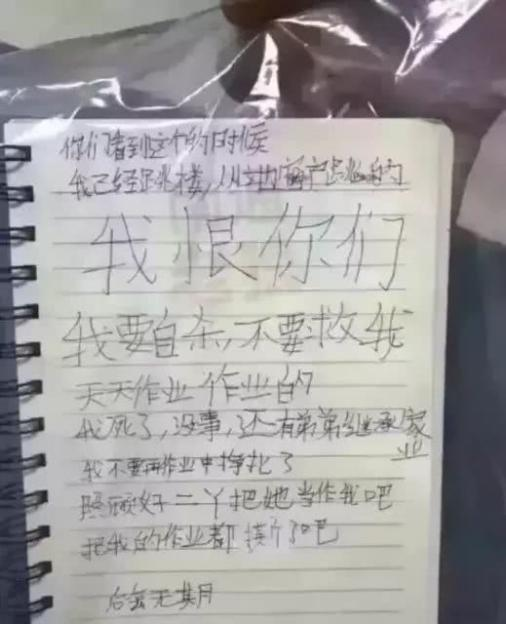 你们看到这个的时候
我已经跳楼,从
我恨你们
我要自杀,不要救我
天天作业作业的
我死了,没事,还有弟弟继承家业
我不要再作业中挣扎了
照顾好二丫把她当作我吧
把我的作业都撕了吧
后会无期